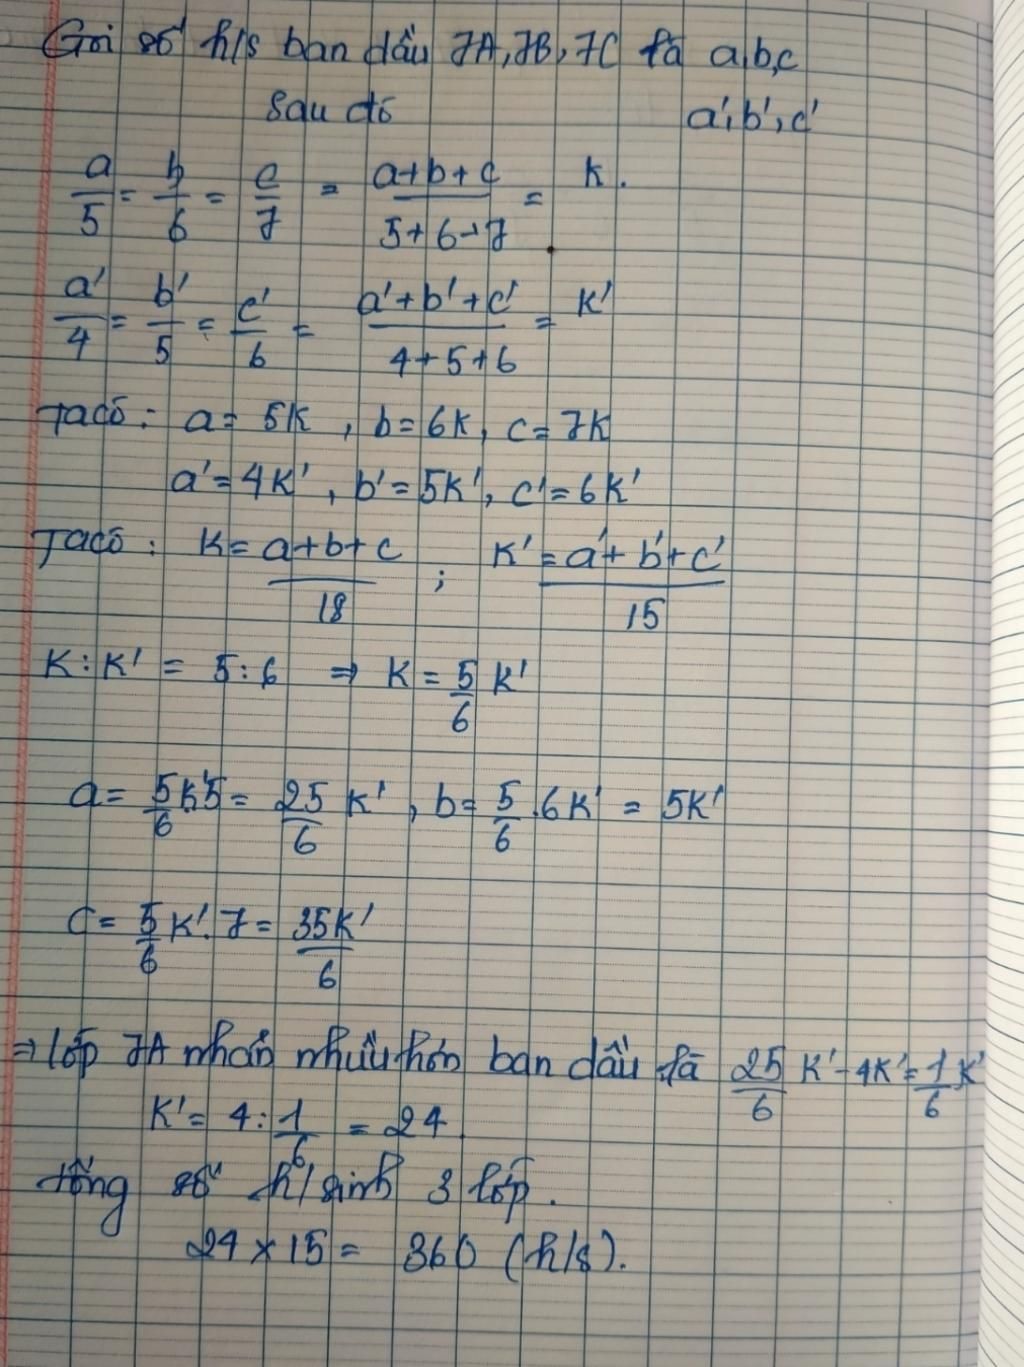 Gọi số h/s ban đầu 7A, 7B, 7C là a,b,c
sau đó a',b',c'
a/5 = b/6 = c/7 = (a+b+c)/(5+6+7) = K.
a'/4 = b'/5 = c'/6 = (a'+b'+c')/(4+5+6) = K'
Ta có: a = 5K, b = 6K, c = 7K
a' = 4K', b' = 5K', c' = 6K'
Ta có: K = (a+b+c)/18 ; K' = (a'+b'+c')/15
K:K' = 5:6 ⇒ K = 5/6 K'
a = 5/6 K'.5 = 25/6 K', b = 5/6 .6K' = 5K'
c = 5/6 K'.7 = 35K'/6
⇒ lớp 7A nhận nhiều hơn ban đầu là 25/6 K' - 4K' = 1/6 K'
K' = 4 : 1/6 = 24
tổng số h/sinh 3 lớp.
24 × 15 = 360 (h/s).